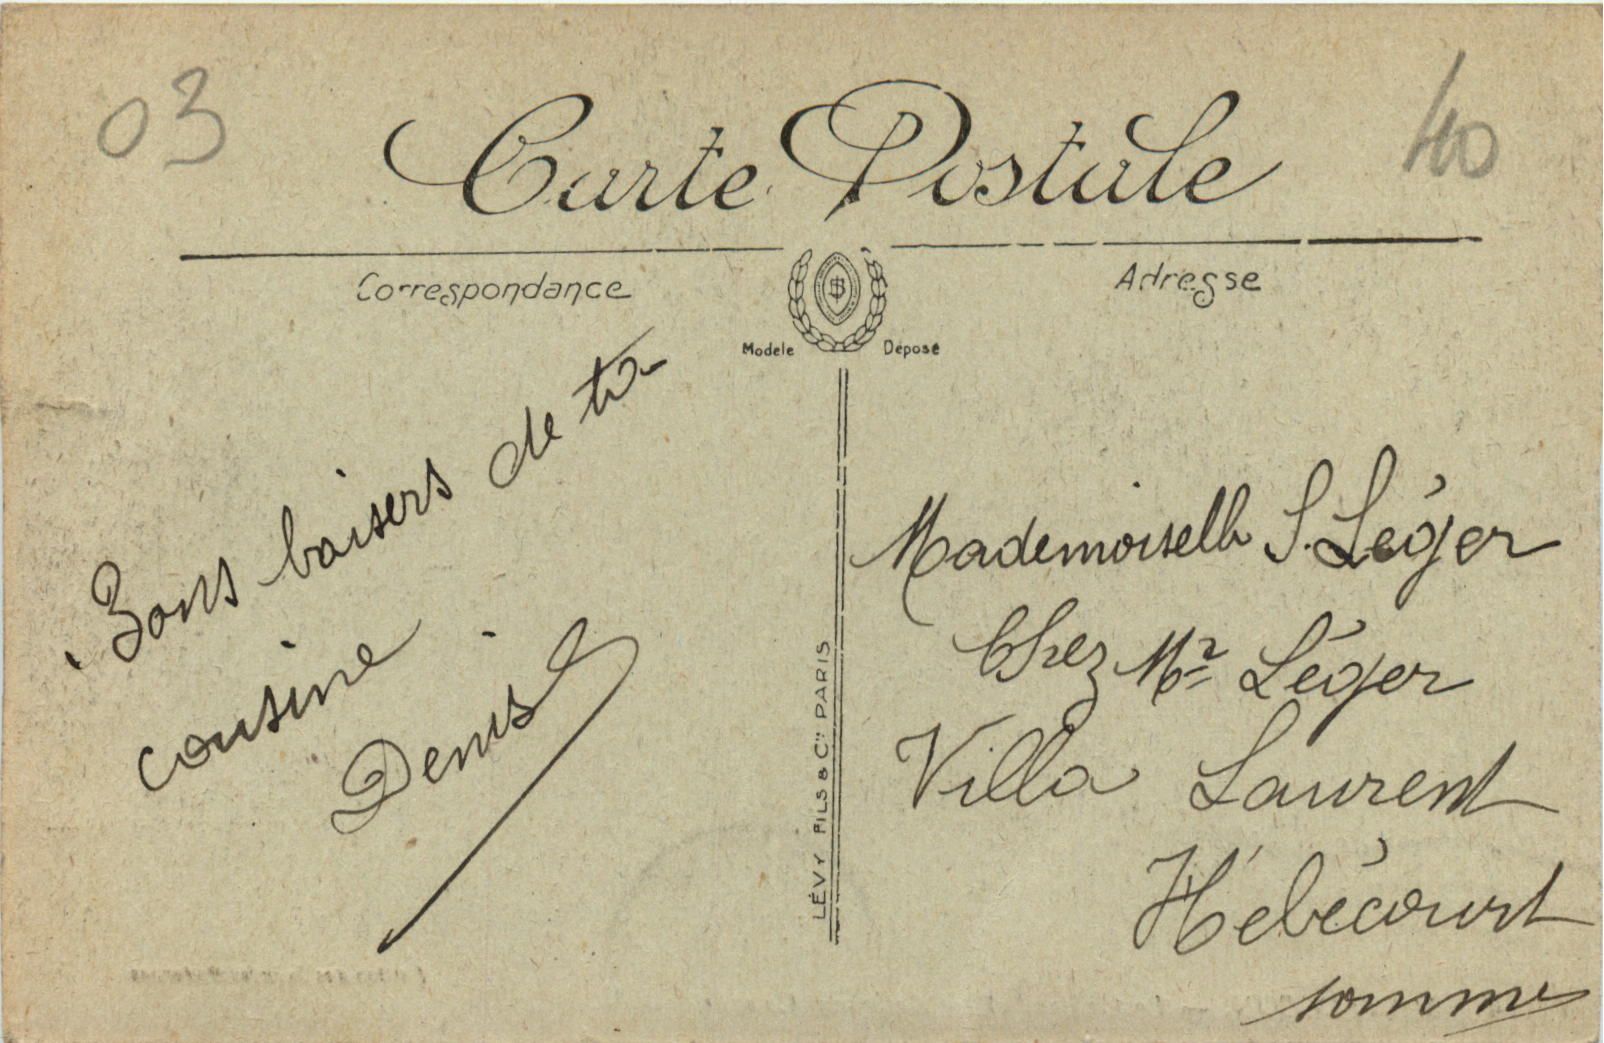 03
40
Carte Postale
Correspondance
Adresse
Modèle Déposé
Bons baisers de ta
cousine
Denis
Mademoiselle S. Léger
Chez Mr Léger
Villa Laurent
Hébécourt
somme
LÉVY FILS & Cie PARIS